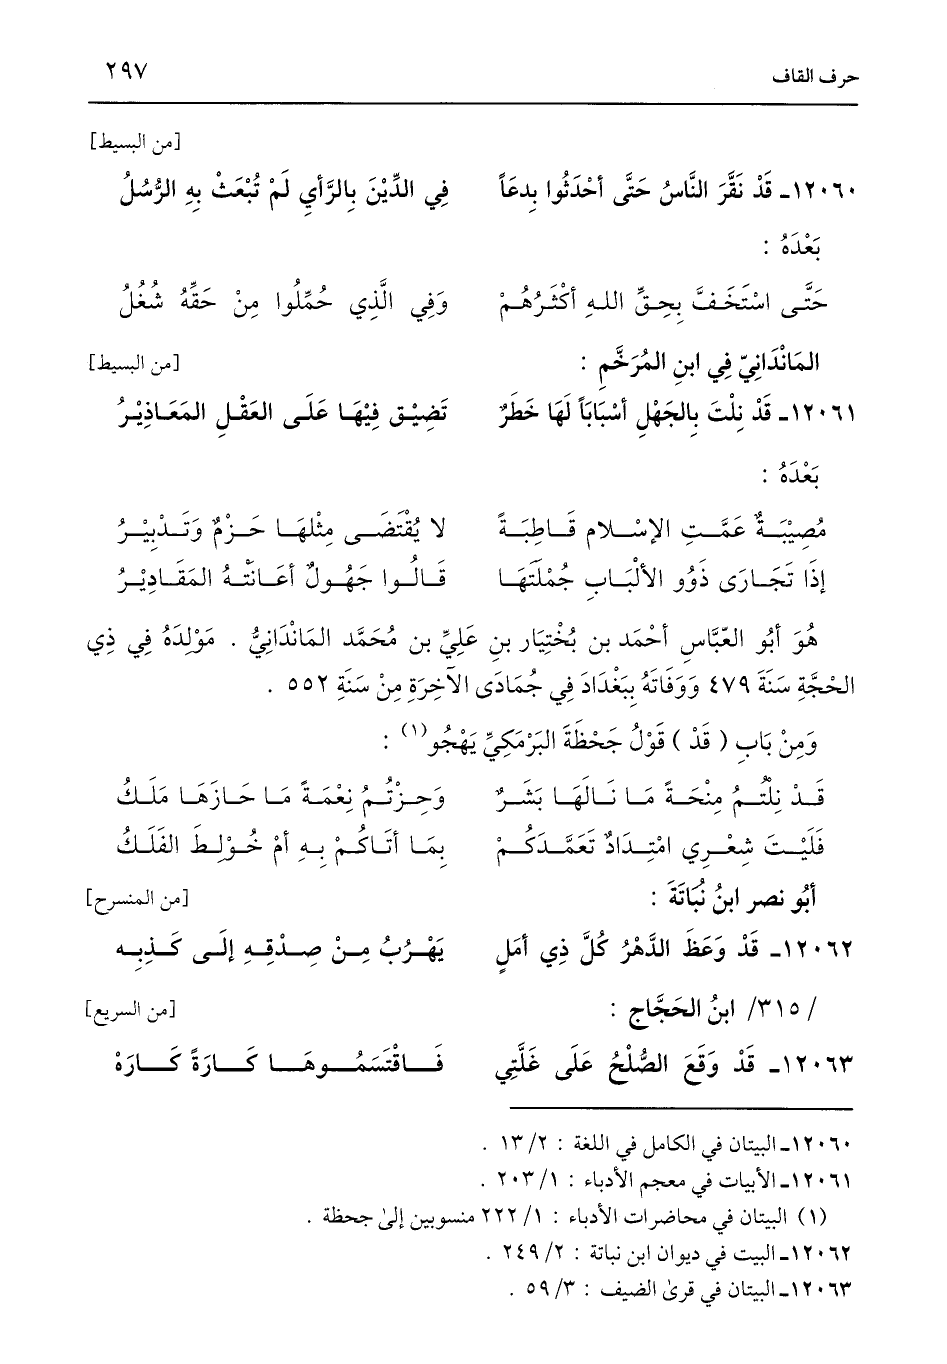 حرف القاف ٢٩٧
[من البسيط]
١٢٠٦٠ـ قَدْ نَقَّرَ النَّاسُ حَتَّى أحْدَثُوا بِدعَاً فِي الدِّيْنَ بِالرَّأيِ لَمْ تُبْعَثْ بِهِ الرُّسُلُ
بَعْدَهُ :
حَتَّـى اسْتَخَـفَّ بِحِـقِّ اللـهِ أكْثَـرُهُـمْ وَفِي الَّذِي حُمِّلُوا مِنْ حَقِّهُ شُغُلُ
المَانْدَانِيّ فِي ابنِ المُرَخَّمِ : [من البسيط]
١٢٠٦١ـ قَدْ نِلْتَ بِالجَهْلِ أسْبَابَاً لَهَا خَطَرٌ تَضِيْقِ فِيْهَا عَلَى العَقْلِ المَعَاذِيْرُ
بَعْدَهُ :
مُصِيْبَـةٌ عَمَّـتِ الإسْـلامِ قَـاطِبَـةً لا يُقْتَضَـى مِثْلهَـا حَـزْمٌ وَتَـدْبِيْـرُ
إذَا تَجَـارَى ذَوُو الألْبَـابِ جُمْلَتَهَـا قَـالُـوا جَهُـولٌ أعَـانَتْـهُ المَقَـادِيْـرُ
هُوَ أبُو العَبَّاسِ أحْمَد بن بُخْتِيَار بنِ عَلِيِّ بن مُحَمَّد المَانْدَانِيُّ . مَوْلِدَهُ فِي ذِي
الحْجَّةِ سَنَةَ ٤٧٩ وَوَفَاتَهُ بِبَغْدَادَ فِي جُمَادَى الآخِرَةِ مِنْ سَنَةِ ٥٥٢ .
وَمِنْ بَابِ ( قَدْ ) قَوْلُ جَحْظَةَ البَرْمَكِيِّ يَهْجُو(١) :
قَـدْ نِلْتُـمُ مِنْحَـةً مَـا نَـالَهَـا بَشَـرٌ وَحِـزْتُـمُ نِعْمَـةً مَـا حَـازَهَـا مَلَـكُ
فَلَيْـتَ شِعْـرِي امْتِـدَادٌ تَعَمَّـدَكُـمْ بِمَـا أتَـاكُـمْ بِـهِ أمْ خُـوْلِـطَ الفَلَـكُ
أبُو نصر ابنُ نُبَاتَةَ : [من المنسرح]
١٢٠٦٢ـ قَدْ وَعَظَ الدَّهْرُ كُلَّ ذِي أمَلٍ يَهْـرُبُ مِـنْ صِـدْقِـهِ إلَـى كَـذِبِـه
/ ٣١٥/ ابنُ الحَجَّاجِ : [من السريع]
١٢٠٦٣ـ قَدْ وَقَعَ الصُّلْحُ عَلَى غَلَّتِي فَـاقْتَسَمُـوهَـا كَـارَةً كَـارَهْ
١٢٠٦٠ـ البيتان في الكامل في اللغة : ٢/ ١٣ .
١٢٠٦١ـ الأبيات في معجم الأدباء : ١/ ٢٠٣ .
(١) البيتان في محاضرات الأدباء : ١/ ٢٢٢ منسوبين إلىٰ جحظة .
١٢٠٦٢ـ البيت في ديوان ابن نباتة : ٢/ ٢٤٩ .
١٢٠٦٣ـ البيتان في قرىٰ الضيف : ٣/ ٥٩ .